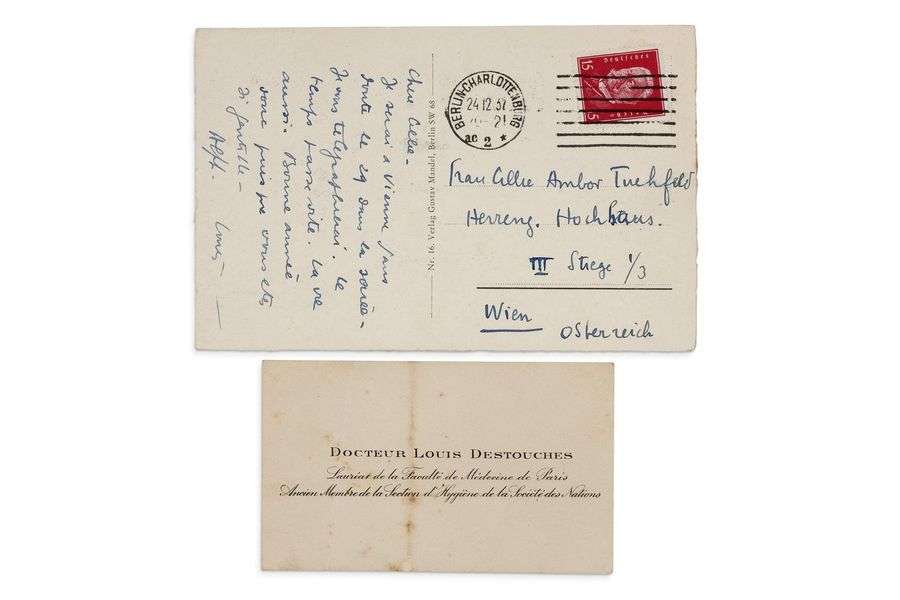 Chère Cillie -
Je serai à Vienne sans
doute le 29 dans la soirée -
Je vous telegraphierai. Le
temps passe vite. La vie
aussi. Bonne année
donc puisque vous etes
si gentille -
Louis -
Nr. 16. Verlag Gustav Mandel, Berlin SW 68
BERLIN-CHARLOTTENBURG
24.12.32
21
ac 2 *
Deutsches
15
15
Frau Cillie Ambor Tuchfeld
Herreng. Hochhaus.
III Stiege 1/3
Wien
Osterreich
DOCTEUR LOUIS DESTOUCHES
Lauréat de la Faculté de Médecine de Paris
Ancien Membre de la Section d'Hygiène de la Société des Nations